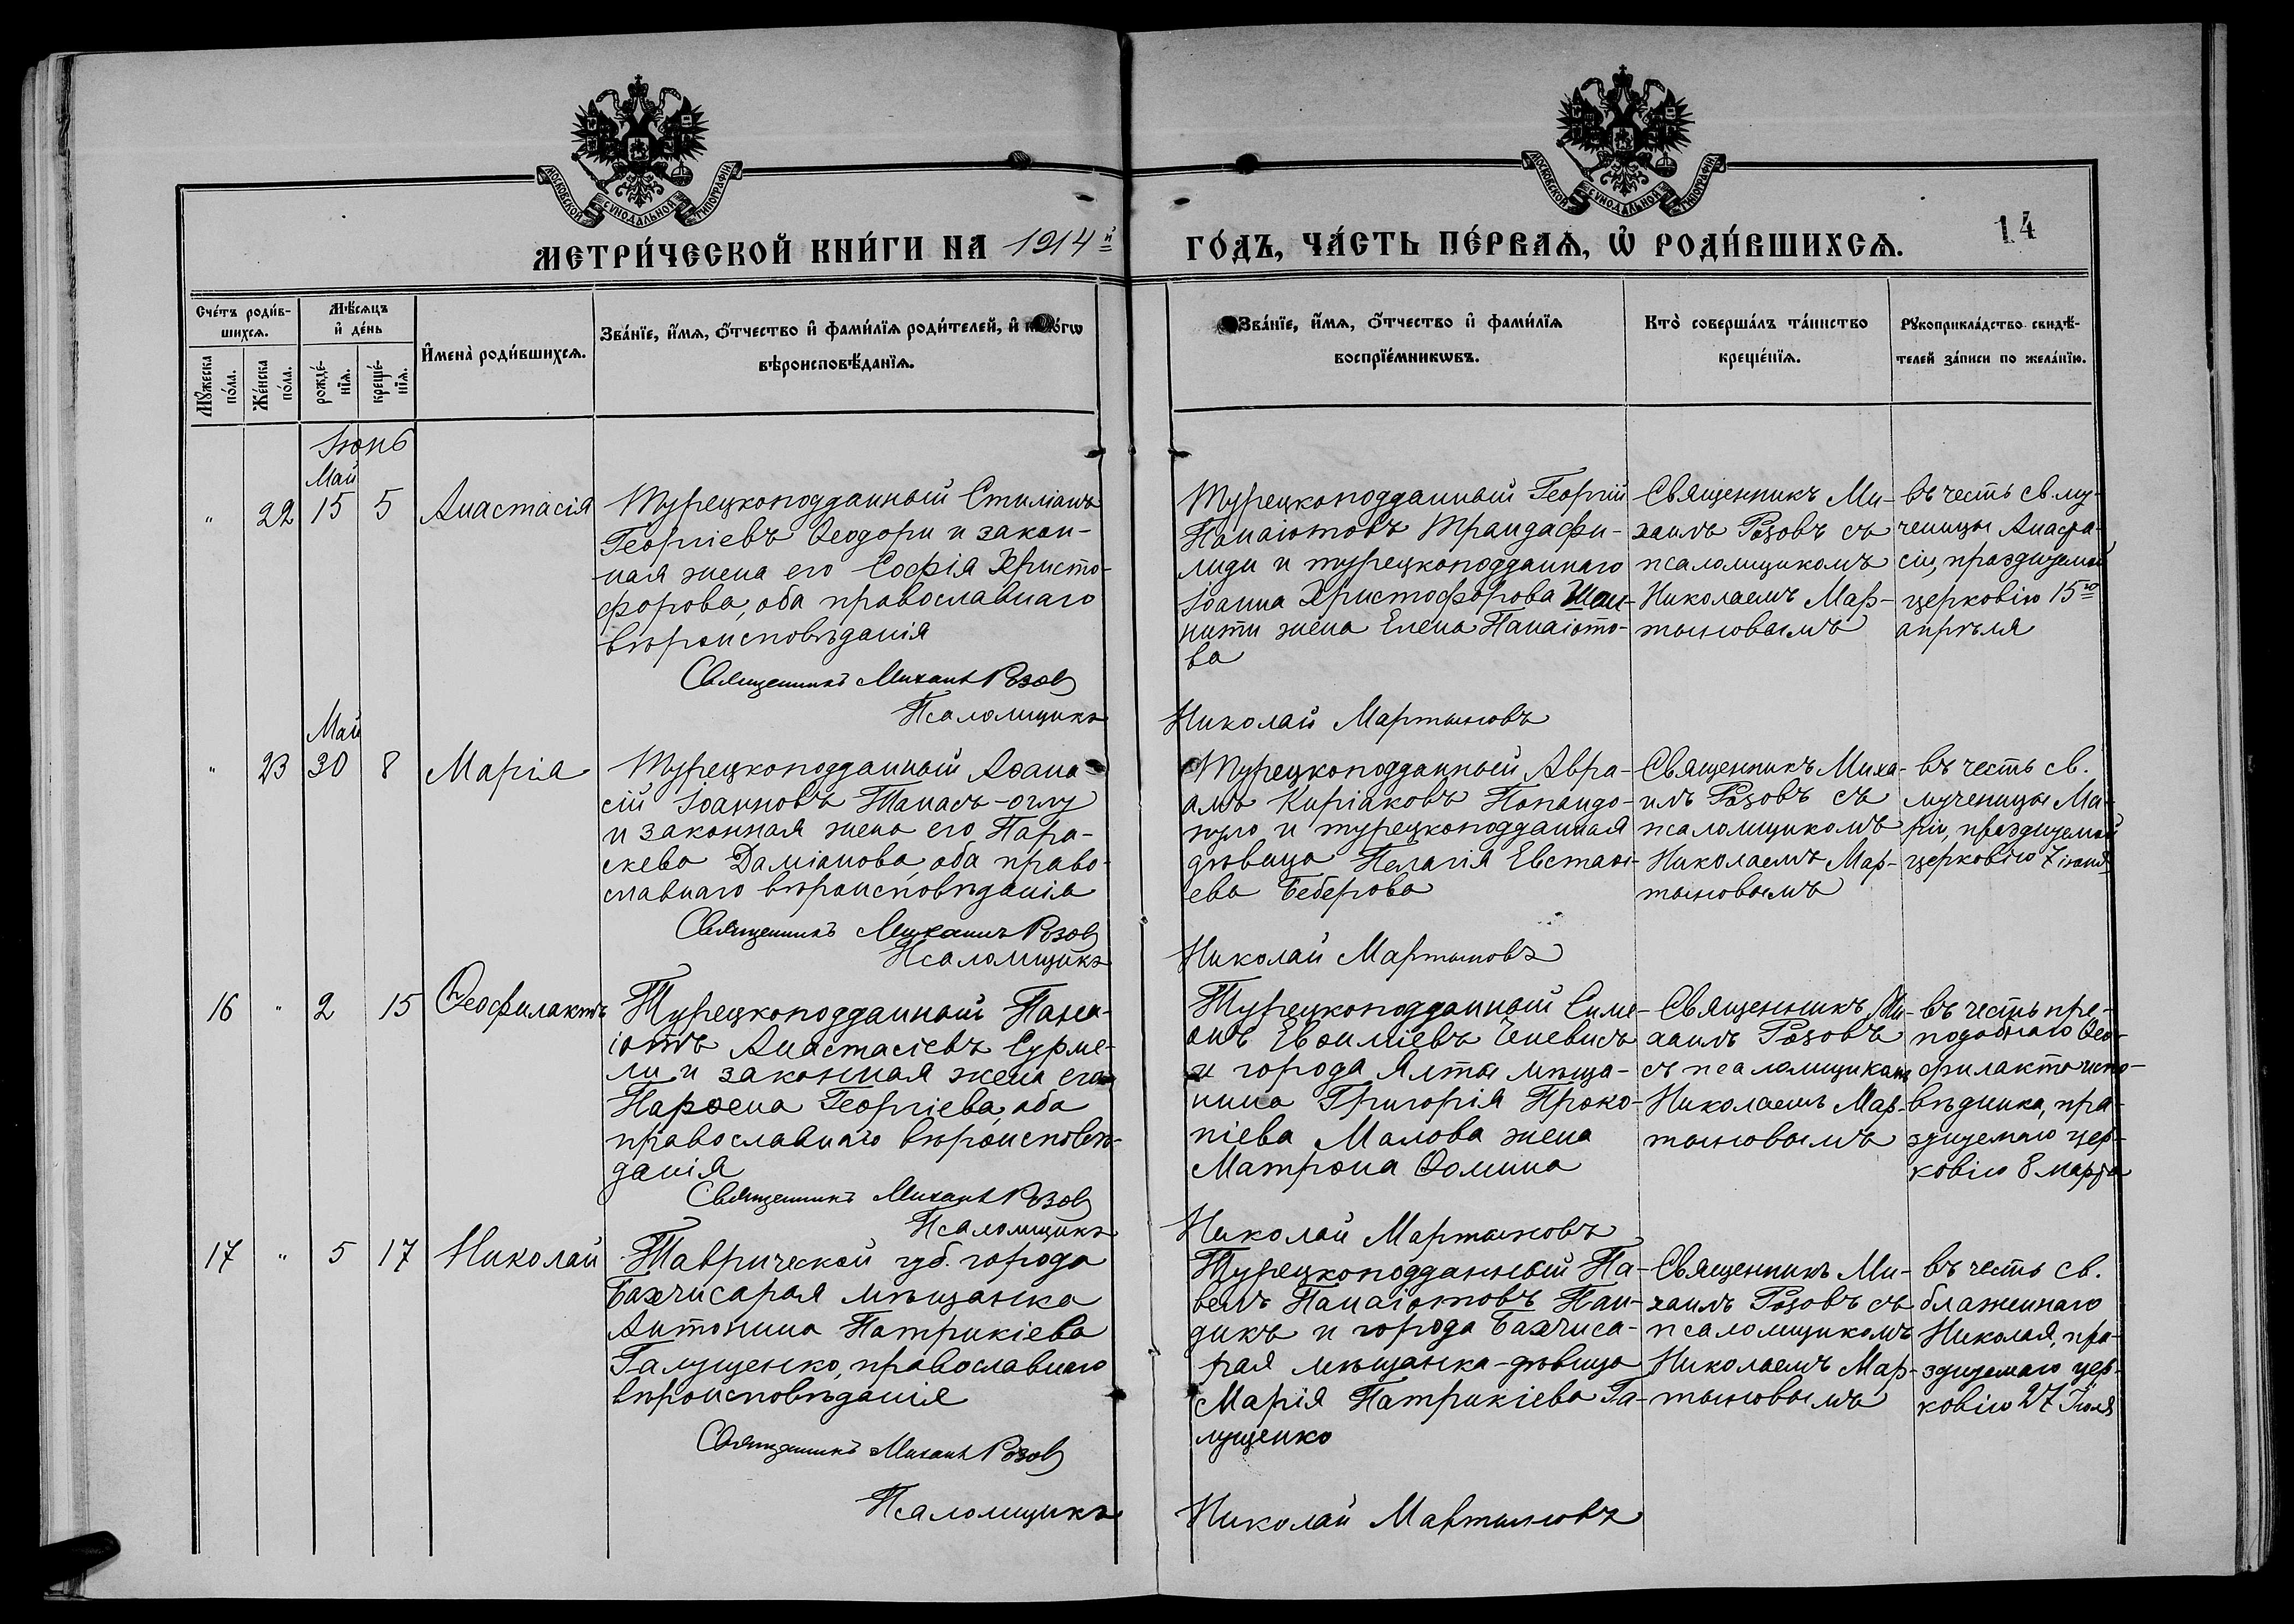 МОСКОВСКОЙ СѴНОДАЛЬНОЙ ТИПОГРАФІИ
МОСКОВСКОЙ СѴНОДАЛЬНОЙ ТИПОГРАФІИ
МЕТРИ́ЧЕСКОЙ КНИ́ГИ НА 1914й
ГО́ДЪ, ЧА́СТЬ ПЕ́РВАѦ, Ѡ҆ РОДИ́ВШИХСѦ.
14
Сче́тъ роди́в-
шихсѧ.
Мѣ́сѧцъ
и҆ де́нь
Мꙋ́жеска
по́ла.
Же́нска
по́ла.
рожде́-
нїѧ.
креще́-
нїѧ.
И҆мена̀ роди́вшихсѧ.
Зва́нїе, и҆́мѧ, ѻ҆́тчество и҆ фами́лїѧ роди́телей, и҆
вѣроисповѣ́данїѧ.
Зва́нїе, и҆́мѧ, ѻ҆́тчество и҆ фами́лїѧ
воспрїе́мникѡвъ.
Кто̀ соверша́лъ та́инство
креще́нїѧ.
Рꙋкоприкла́дство свидѣ́-
телей за́писи по жела́нїю.
Іюнь
Май
" 22 15 5 Анастасія
Турецкоподданный Стиліанъ
Георгіевъ Ѳеодори и закон-
ная жена его Софія Христо-
форова, оба православнаго
вѣроисповѣданія
Священникъ Михаилъ Розовъ
Псаломщикъ
Турецкоподданный Георгій
Панаіотовъ Трандафи-
лиди и турецкоподданнаго
Іоанна Христофорова Шан-
нити жена Елена Панаіото-
ва
Николай Мартыновъ
Священникъ Ми-
хаилъ Розовъ съ
псаломщикомъ
Николаемъ Мар-
тыновымъ
въ честь св. му-
ченицы Анаста-
сіи, празднуемой
церковію 15го
апрѣля
Май
" 23 30 8 Марія
Турецкоподданный Аѳана
сій Іоанновъ Танасъ-оглу
и законная жена его Пара-
скева Даміанова, оба право-
славнаго вѣроисповѣданія
Священникъ Михаилъ Розовъ
Псаломщикъ
Турецкоподданный Авра-
амъ Киріаковъ Попандо-
пуло и турецкоподданная
дѣвица Пелагія Евстаѳі-
ева Беберова
Николай Мартыновъ
Священникъ Миха-
илъ Розовъ съ
псаломщикомъ
Николаемъ Мар-
тыновымъ
въ честь св.
мученицы Ма-
ріи, празднуемой
церковію 7 іюня
16 " 2 15 Ѳеофилактъ
Турецкоподданный Пана-
іотъ Анастасіевъ Сурме-
ли и законная жена его
Парѳена Георгіева, оба
православнаго вѣроисповѣ-
данія
Священникъ Михаилъ Розовъ
Псаломщикъ
Турецкоподданный Симе-
онъ Евѳиміевъ Ченевисъ
и города Ялты мѣща-
нина Григорія Проко-
піева Малова жена
Матрона Ѳомина
Николай Мартыновъ
Священникъ Ми-
хаилъ Розовъ
съ псаломщикомъ
Николаемъ Мар-
тыновымъ
въ честь пре-
подобнаго Ѳео-
филакта испо-
вѣдника, пра-
зднуемаго цер-
ковію 8 марта
17 " 5 17 Николай
Таврической губ. города
Бахчисарая мѣщанка
Антонина Патрикіева
Галущенко, православнаго
вѣроисповѣданія
Священникъ Михаилъ Розовъ
Псаломщикъ
Турецкоподданный Па-
велъ Панаіотовъ Пан-
дикъ и города Бахчиса-
рая мѣщанка-дѣвица
Марія Патрикіева Га-
лущенко
Николай Мартыновъ
Священникъ Ми-
хаилъ Розовъ съ
псаломщикомъ
Николаемъ Мар-
тыновымъ
въ честь св.
блаженнаго
Николая, пра-
зднуемаго цер-
ковію 27 Іюля